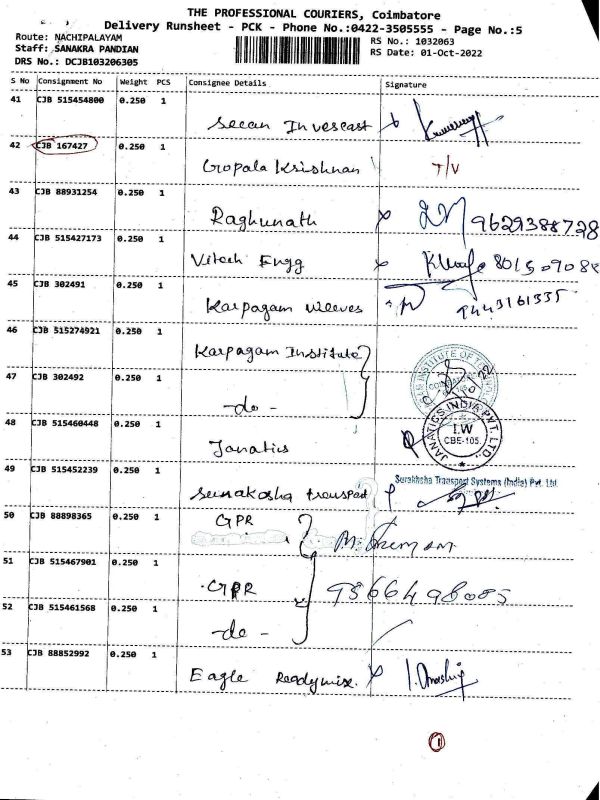 THE PROFESSIONAL COURIERS, Coimbatore
Delivery Runsheet - PCK - Phone No.:0422-3505555 - Page No.:5
Route: NACHIPALAYAM
RS No.: 1032063
Staff: SANAKRA PANDIAN
RS Date: 01-Oct-2022
DRS No.: DCJB103206305
S No Consignment No Weight PCS Consignee Details Signature
41 CJB 515454800 0.250 1
Secan Invescast
42 CJB 167427 0.250 1
Gopala Krishnan T/V
43 CJB 88931254 0.250 1
Raghunath 9629388728
44 CJB 515427173 0.250 1
Vitech Engg
45 CJB 302491 0.250 1
Karpagam Weeves 9443161335
46 CJB 515274921 0.250 1
Karpagam Institute
47 CJB 302492 0.250 1
-do-
48 CJB 515460448 0.250 1
Janatics
JANATICS INDIA PVT. LTD.
I.W
CBE-105.
49 CJB 515452239 0.250 1
Surakhsha Transport Systems (India) Pvt. Ltd
transport
50 CJB 88898365 0.250 1
GPR
51 CJB 515467901 0.250 1
GPR
52 CJB 515461568 0.250 1
-do-
53 CJB 88852992 0.250 1
Eagle Readymix.
1